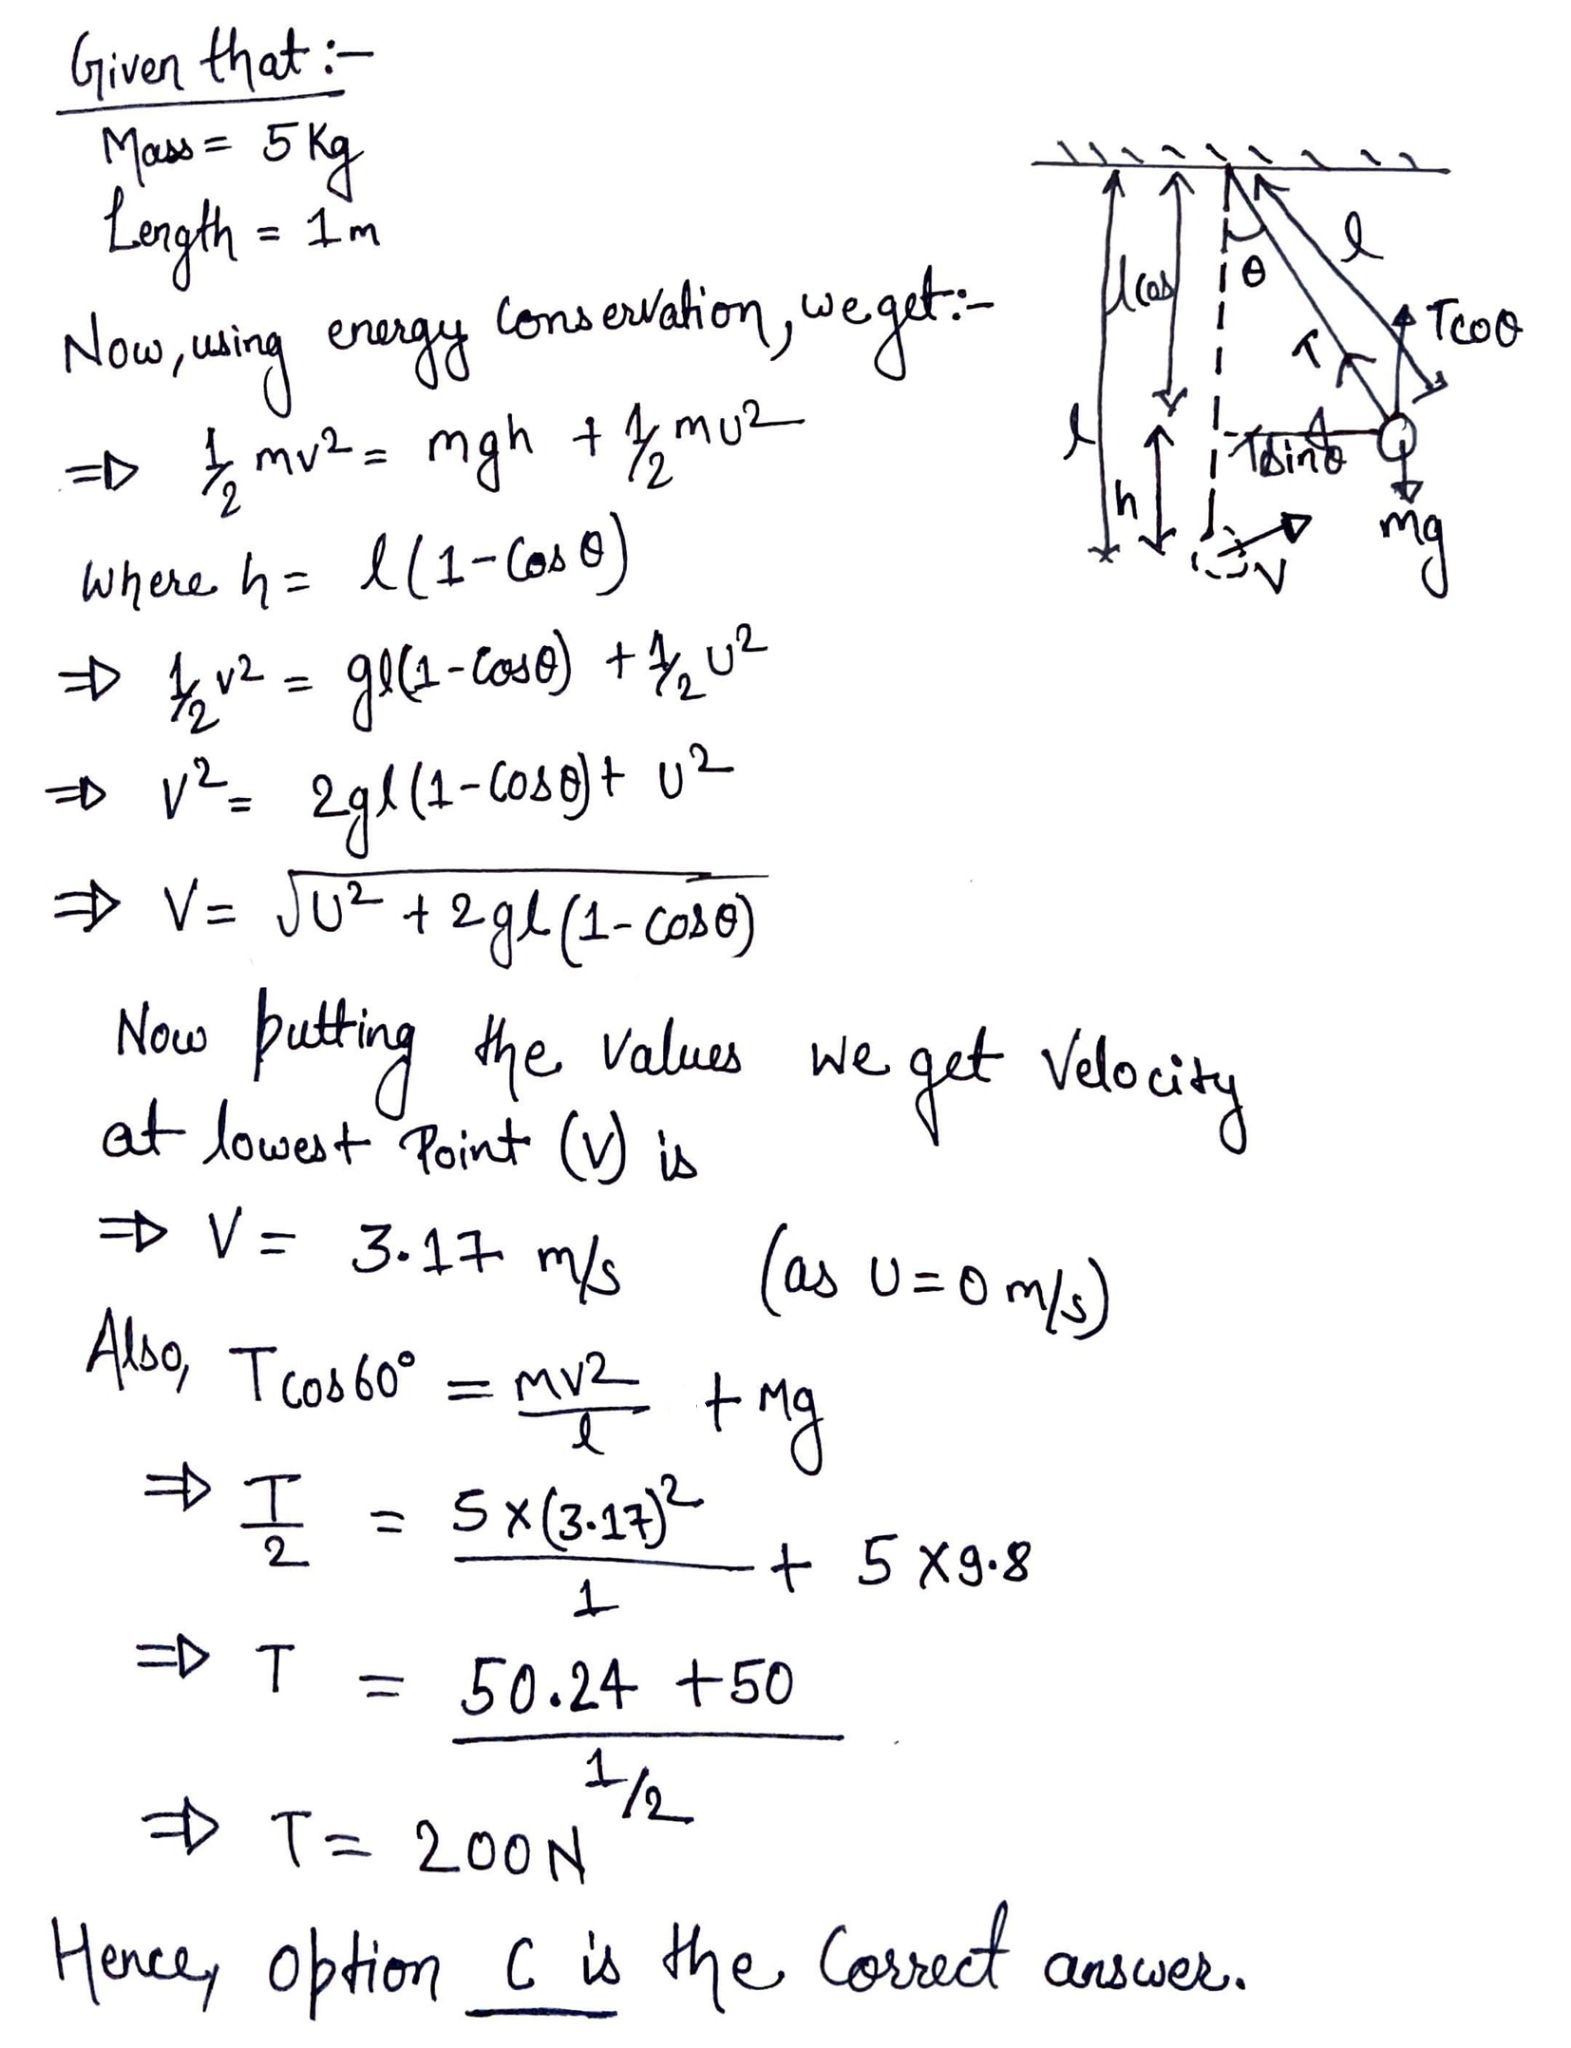 Given that :-
Mass = 5 Kg
Length = 1m
Now, using energy Conservation, we get:-
⇒ 1/2 mv² = mgh + 1/2 mu²
Where h = l(1-Cosθ)
⇒ 1/2 v² = gl(1-Cosθ) + 1/2 U²
⇒ V² = 2gl(1-Cosθ) + U²
⇒ V = √U² + 2gl(1-Cosθ)
Now putting the Values we get Velocity
at lowest Point (V) is
⇒ V = 3.17 m/s (as U = 0 m/s)
Also, Tcos60° = mv²/l + Mg
⇒ T/2 = 5×(3.17)²/1 + 5×9.8
⇒ T = 50.24 + 50
1/2
⇒ T = 200N
Hence, option C is the Correct answer.
lcos
θ
l
Tcoθ
T
l
Tsinθ
h
V
mg